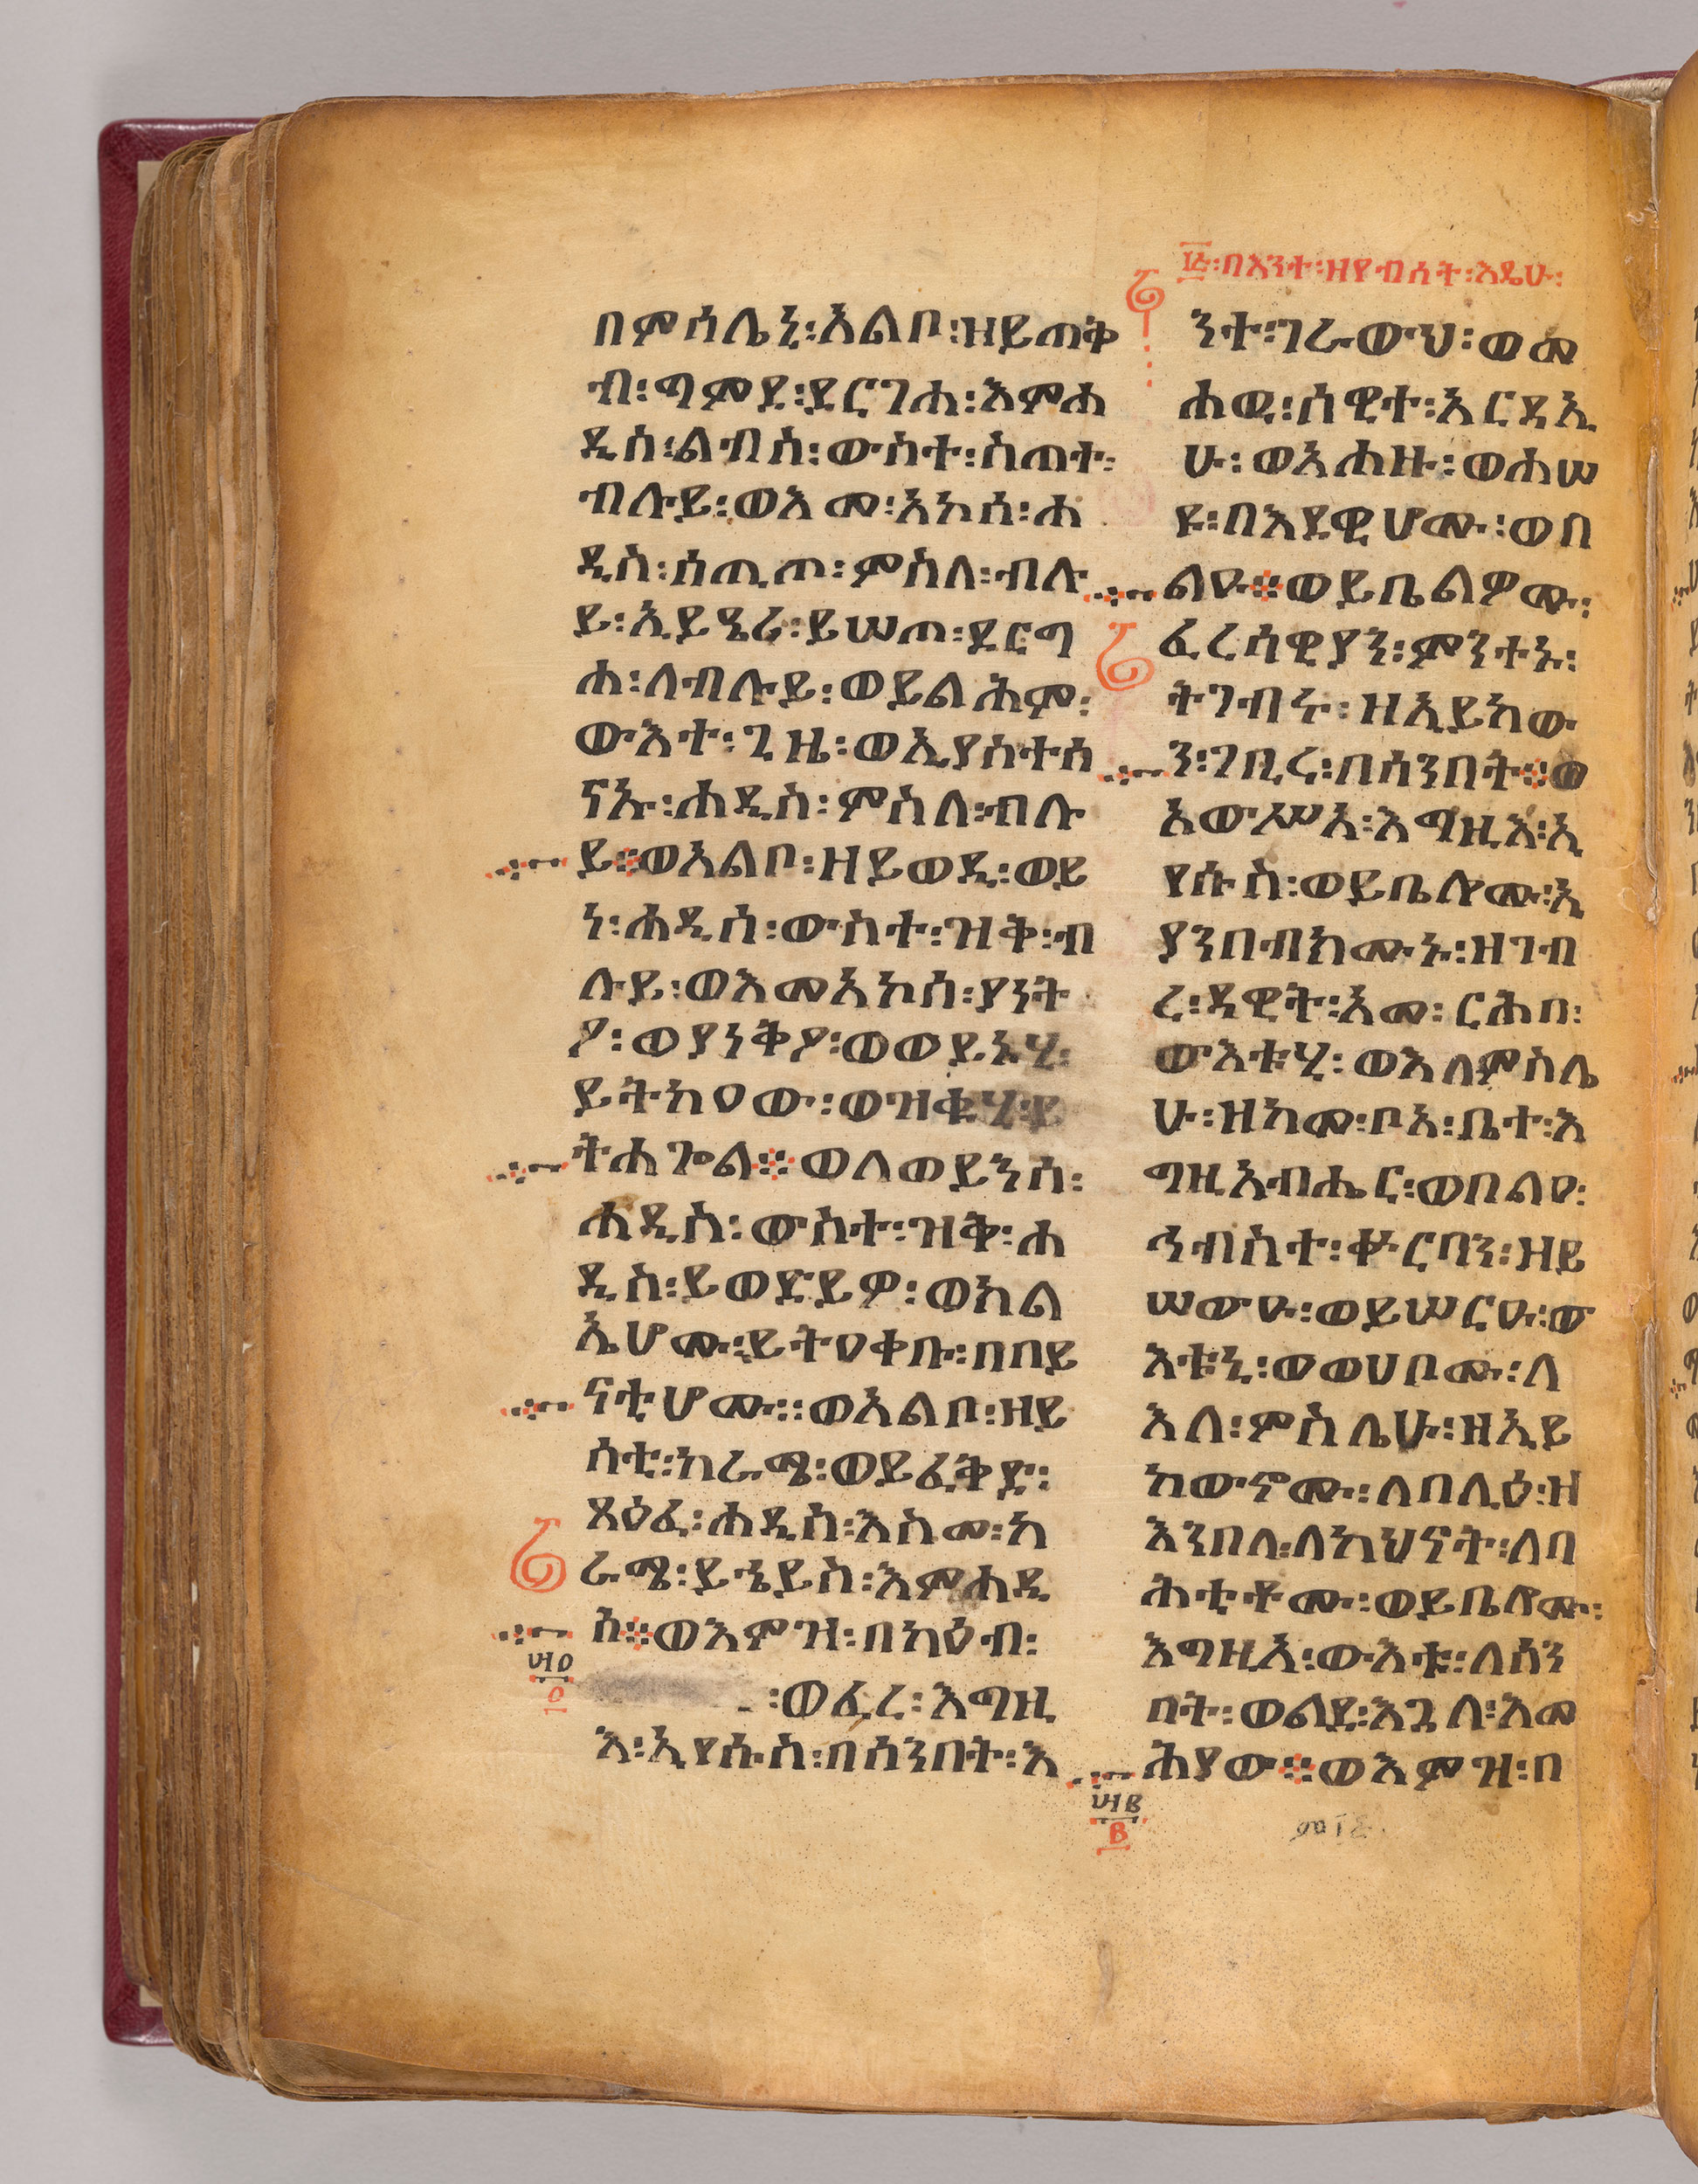 ፲፭፡በእንተ፡ዘየብሰት፡እዴሁ፡
በምሳሌ፡ኒ፡አልቦ፡ዘይጠቅ
ብ፡ግምደ፡ደርገሐ፡እምሐ
ዲስ፡ልብስ፡ውስተ፡ስጠተ፡
ብሉይ፡ወእመ፡አኮሰ፡ሐ
ዲስ፡ሰጢጦ፡ምስለ፡ብሉ
ይ፡ኢይዔሪ፡ይሠጦ፡ደርግ
ሐ፡ለብሉይ፡ወይልሕም፡
ውእተ፡ጊዜ፡ወኢያስተሰ
ናኡ፡ሐዲስ፡ምስለ፡ብሉ
ይ፨ወአልቦ፡ዘይወዲ፡ወይ
ነ፡ሐዲሰ፡ውስተ፡ዝቅ፡ብ
ሉይ፡ወእመአኮሰ፡ያነት
ዖ፡ወያነቅዖ፡ወወይኑሂ፡
ይትከዐው፡ወዝቁሂ፡ይ
ትሐጐል፨ወለወይንሰ፡
ሐዲስ፡ውስተ፡ዝቅ፡ሐ
ዲስ፡ይወድይዎ፡ወክል
ኤሆሙ፡ይትዐቀቡ፡በበይ
ናቲሆሙ፡፡ወአልቦ፡ዘይ
ሰቲ፡ከራሜ፡ወይፈቅድ፡
ጸዕፈ፡ሐዲስ፡እስመ፡ከ
ራሜ፡ይኄይስ፡እምሐዲ
ስ፨ወእምዝ፡በካዕብ፡
፡ወፈረ፡እግዚ
እ፡ኢየሱስ፡በሰንበት፡እ
ንተ፡ገራውህ፡ወመ
ሐወ፡ሰዊተ፡አርዳኢ
ሁ፡ወአሐዙ፡ወሐሠ
ዩ፡በእደዊሆሙ፡ወበ
ልዑ፨ወይቤልዎሙ፡
ፈረሳዊያን፡ምንተኑ፡
ትገብሩ፡ዘኢይከው
ን፡ገቢሩ፡በሰንበት፨ወ
አውሥአ፡እግዚእ፡ኢ
የሱስ፡ወይቤሎሙ፡ኢ
ያንበብክሙኑ፡ዘገብ
ረ፡ዳዊት፡አመ፡ርሕበ፡
ውእቱሂ፡ወእለምስሌ
ሁ፡ዘከመ፡ቦአ፡ቤተ፡እ
ግዚአብሔር፡ወበልዐ፡
ኅብስተ፡ቍርባን፡ዘይ
ሠውዑ፡ወይሠርዑ፡ው
እቱኒ፡ወወሀቦሙ፡ለ
እለ፡ምስሌሁ፡ዘኢይ
ከውኖሙ፡ለበሊዕ፡ዝ
እንበለ፡ለካህናት፡ለባ
ሕቲቶሙ፡ወይቤሎሙ፡
እግዚአ፡ውእቱ፡ለሰን
በት፡ወልደ፡እጓለ፡እመ
ሕያው፨ወእምዝ፡በ